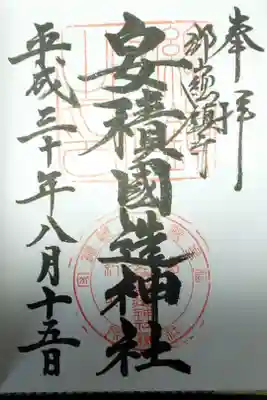 奉拝
郡山總鎮守
安積國造神社
平成三十年八月十五日